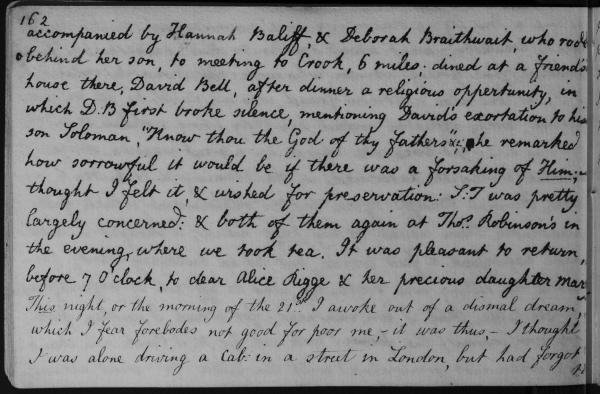 162
accompanied by Hannah Baliff, & Deborah Braithwait, who rode
behind her son, to meeting to Crook, 6 miles; dined at a friend's
house there, David Bell, after dinner a religious oppertunity, in
which D.B first broke silence, mentioning David's exortation to his
son Soloman, "Know thou the God of thy fathers" &c; he remarked
how sorrowful it would be if there was a forsaking of Him;-
thought I felt it, & wished for preservation: S.T was pretty
largely concerned: & both of them again at Thos. Robinson's in
the evening, where we took tea. It was pleasant to return,
before 7 O'clock, to dear Alice Rigge & her precious daughter Mary
This night, or the morning of the 21st I awoke out of a dismal dream,
which I fear forebodes not good for poor me, - it was thus, - I thought
I was alone driving a Cab: in a street in London, but had forgot